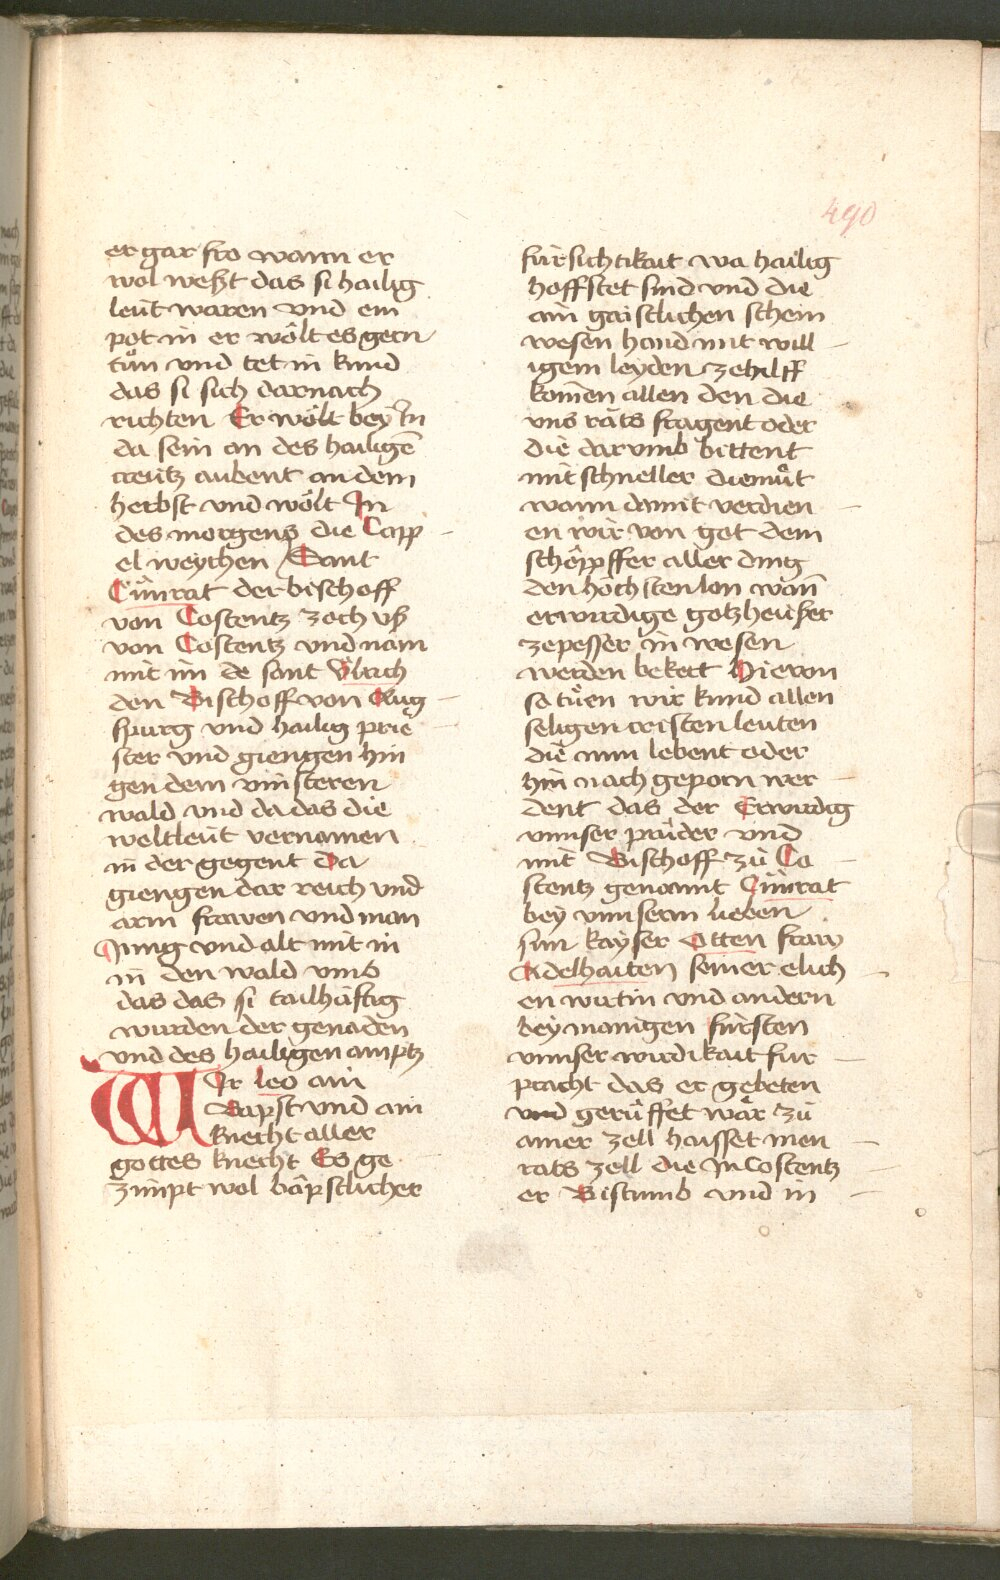 490
er gar fro wann er
wol weßt das si hailig
leüt waren vnd em
pot in er wölt es gern
tůn vnd tet in kund
das si sich darnach
richten Er wölt bey In
da sein an des hailigē
creütz aubent an dem
herbst vnd wölt In
des morgens die Capp
el weyhen Sant
Cůnrat der bischoff
von Costentz zoch vß
von Costentz vnd nam
mit im de sant Ǔlrich
den Bischoff von Aug
spurg vnd hailig prie
ster vnd giengen hin
gen dem vinsteren
wald vnd da das die
weltleüt vernamen
in der gegent Da
giengen dar reich vnd
arm frawen vnd man
Jung vnd alt mit in
in den wald vmb
das das si tailhäftig
wurden der genaden
vnd des hailigen amptz
WIr leo ain
Bapst vnd ain
knecht aller
gottes knecht Es ge
zimpt wol bäpstlicher
fürsichtikait wa hailig
hoffstet sind vnd die
ain gaistlichen schein
wesen hand mit will
igem leyden ze hilff
komen allen den die
vns räts fragent oder
die dar vmb bittent
mit schneller diemůt
wann damit verdien
en wir von got dem
schöpffer aller ding
den höchsten lon wañ
erwirdige gotzheüßer
ze pesser in wesen
werden bekert Hie von
so tüen wir kund allen
seligen cristen leuten
die nun lebent oder
hin nach geporn wer
dent das der Erwirdig
vnnser prüder vnd
mit Bischoff zů Co
stentz genannt Cůnrat
bey vnnserm lieben
sun kayser Otten fraw
Adelhaiten seiner elich
en wirtin vnd andern
bey manigen fürsten
vnnser wirdikait für
pracht das er gebeten
vnd gerüffet wär zů
ainer zell haisset mein
rats zell die In Costentz
er Bistumb vnd in